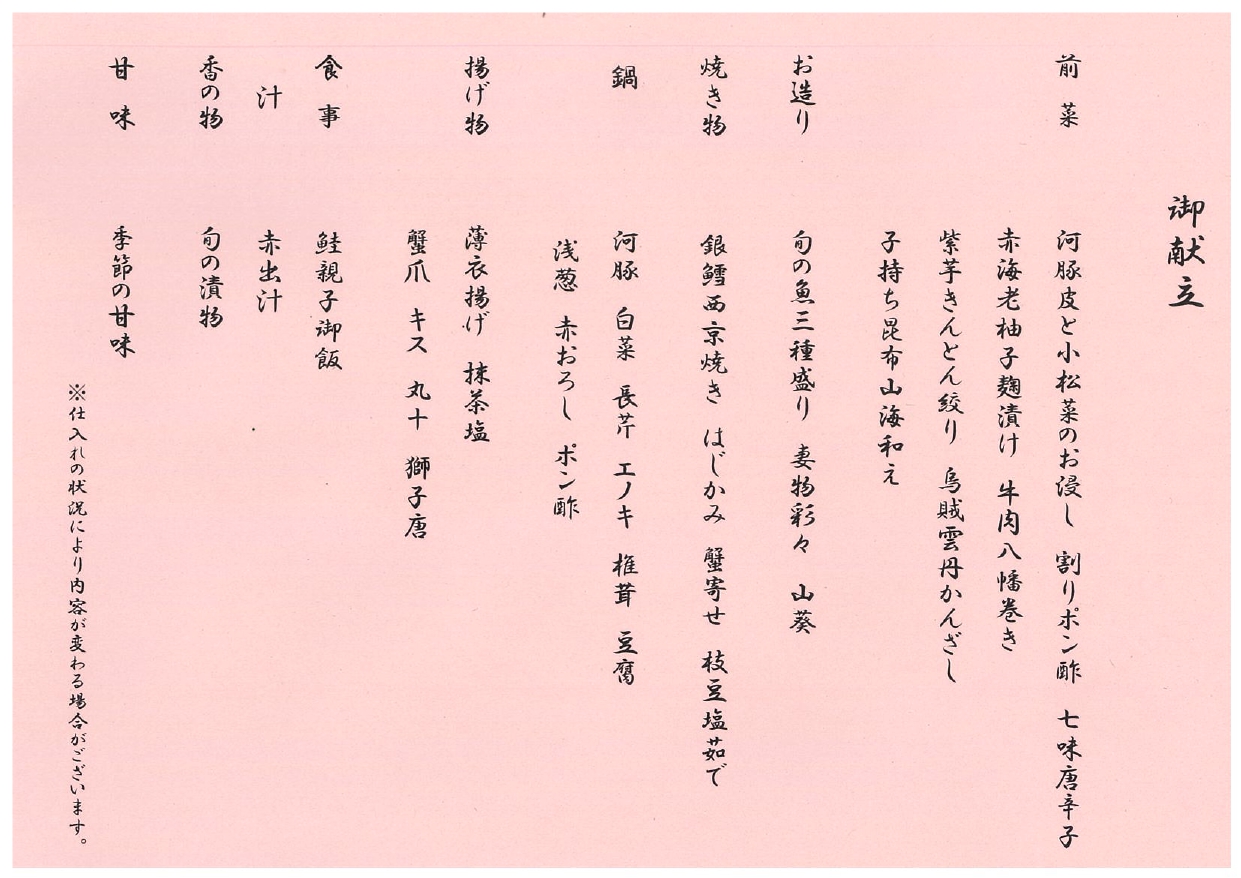 御献立
前菜　河豚皮と小松菜のお浸し　割りポン酢　七味唐辛子
赤海老柚子麹漬け　牛肉八幡巻き
紫芋きんとん絞り　烏賊雲丹かんざし
子持ち昆布山海和え
お造り　旬の魚三種盛り　妻物彩々　山葵
焼き物　銀鱈西京焼き　はじかみ　蟹寄せ　枝豆塩茹で
鍋　河豚　白菜　長芹　エノキ　椎茸　豆腐
浅葱　赤おろし　ポン酢
揚げ物　薄衣揚げ　抹茶塩
蟹爪　キス　丸十　獅子唐
食事　鮭親子御飯
汁　赤出汁
香の物　旬の漬物
甘味　季節の甘味
※仕入れの状況により内容が変わる場合がございます。